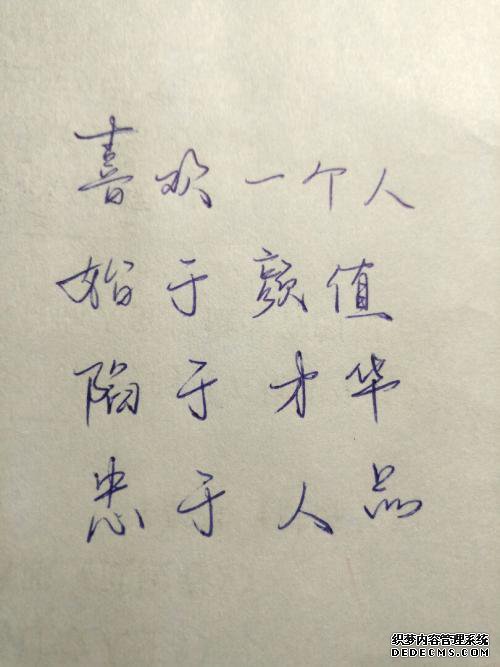 喜欢一个人
始于颜值
陷于才华
忠于人品
织梦内容管理系统
DEDECMS.COM